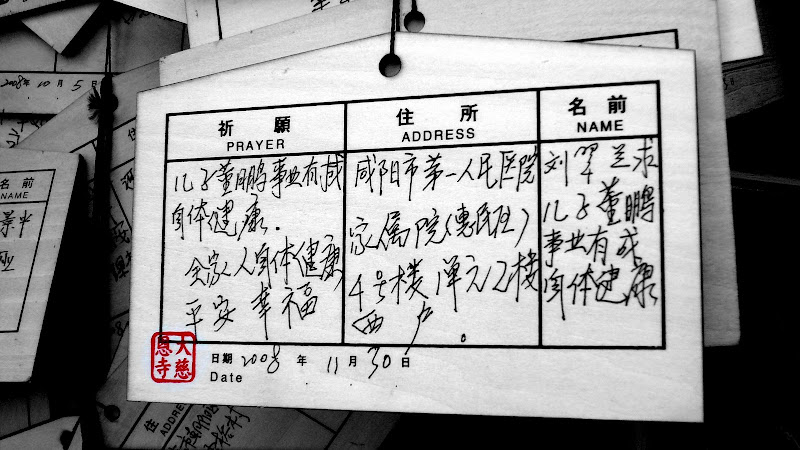 祈 願
PRAYER
儿子董鹏事业有成
身体健康.
全家人身体健康
平安 幸福
住 所
ADDRESS
咸阳市第一人民医院
家属院(惠民区)
4号楼1单元12楼
西户。
名 前
NAME
刘翠兰求
儿子董鹏
事业有成
身体健康
大慈
恩寺
日期 2008 年 11 月 30 日
Date
2008年10月5日
名 前
NAME
住
ADDRE